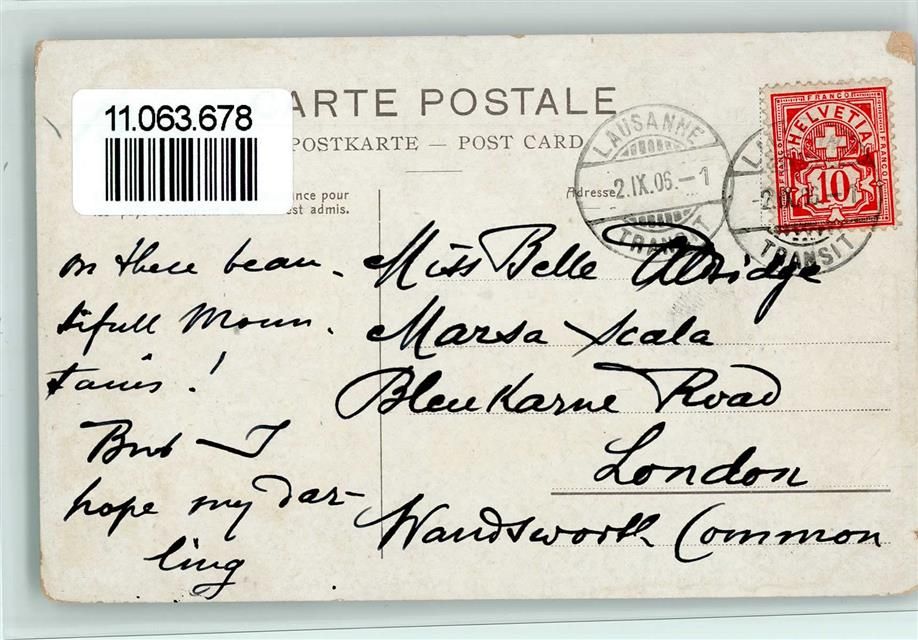 11.063.678
ARTE POSTALE
POSTKARTE — POST CARD
nce pour
est admis.
Adresse
LAUSANNE
-2.IX.06.-1
TRANSIT
TRANSIT
FRANCO
FRANCO
FRANCO
HELVETIA
10
on these beau-
tifull Moun-
tains!
But I
hope my dar-
ling
Miss Belle Aldridge
Marsa Scala
Blenkarne Road
London
Wandsworth Common